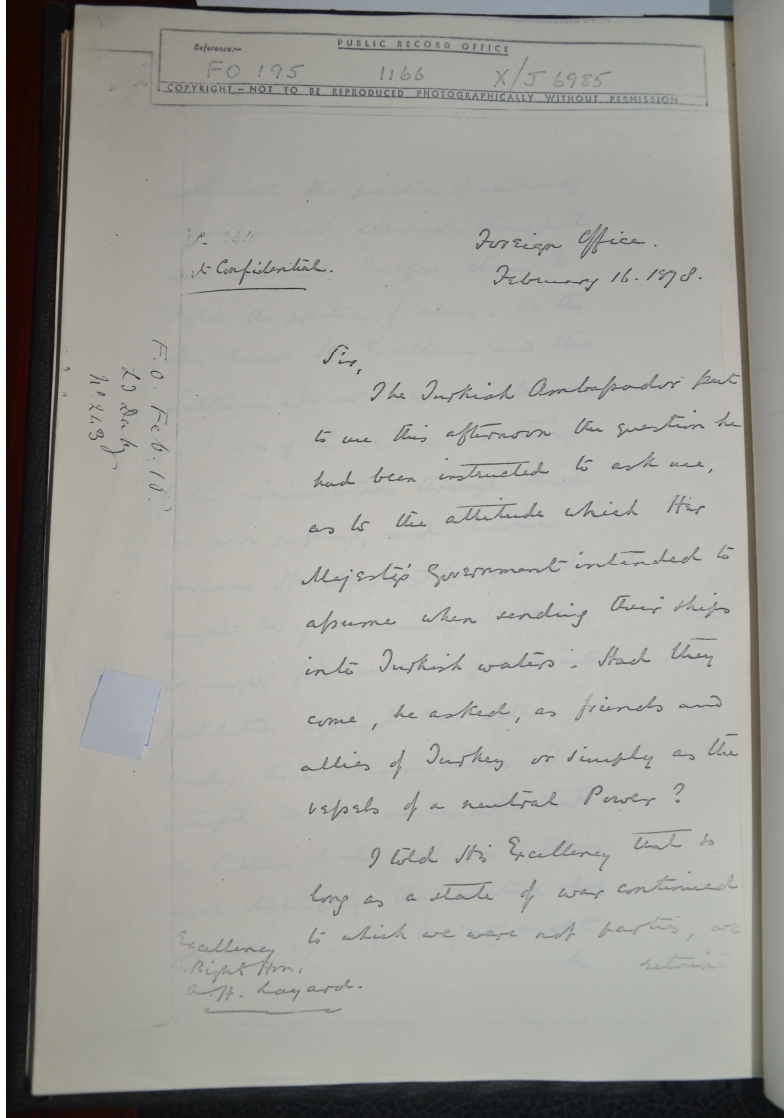 Reference:-
PUBLIC RECORD OFFICE
FO 195 1166 X/J 6985
COPYRIGHT - NOT TO BE REPRODUCED PHOTOGRAPHICALLY WITHOUT PERMISSION
244
Confidential.
Foreign Office.
February 16. 1878.
F.O. Feb. 16.
Ld Derby
No. 243
Sir,
The Turkish Ambassador put
to me this afternoon the question he
had been instructed to ask me,
as to the attitude which Her
Majesty's Government intended to
assume when sending their ships
into Turkish waters. Had they
come, he asked, as friends and
allies of Turkey or simply as the
vessels of a neutral Power?
I told His Excellency that so
long as a state of war continued
to which we were not parties, we
retain
Excellency
Right Hon:
A. H. Layard.